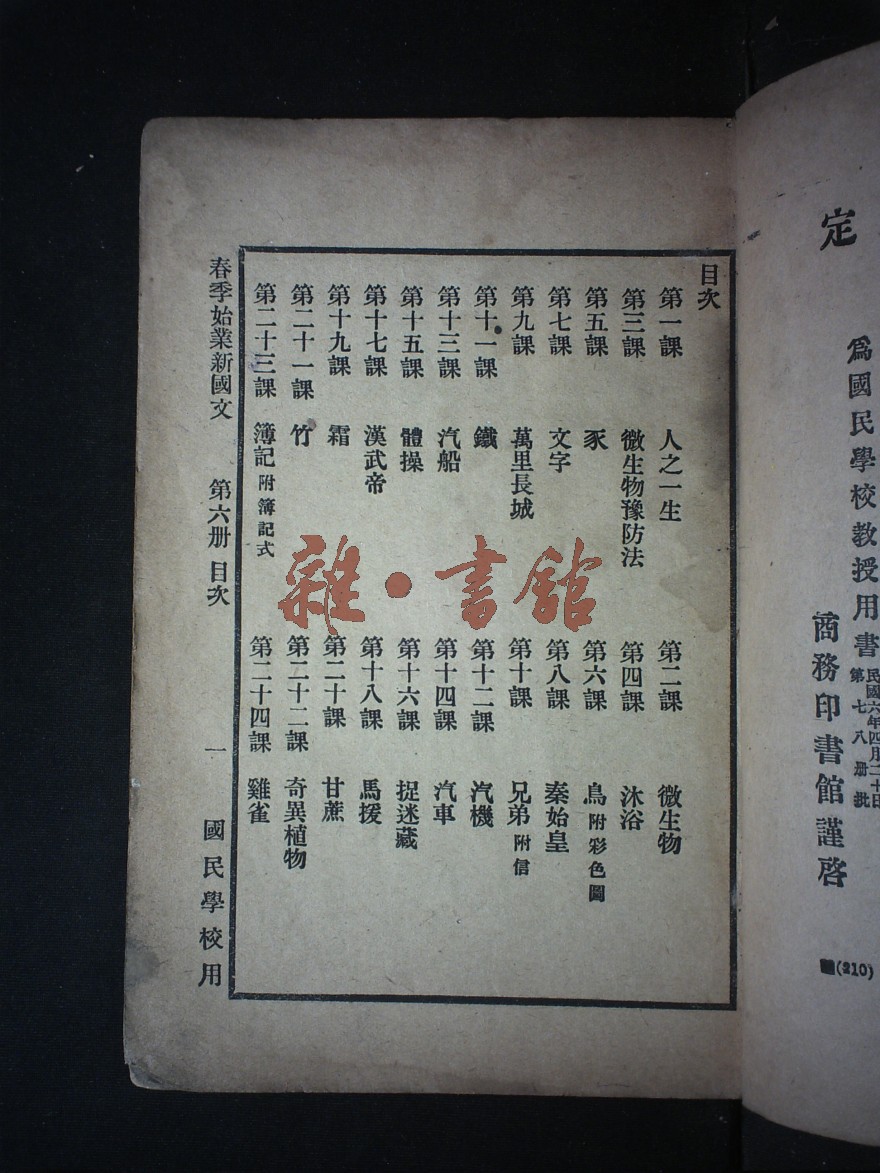 定
爲國民學校教授用書
民國六年四月二十日
第七八册批
商務印書館謹啓
(210)
目次
第一課 人之一生
第二課 微生物
第三課 微生物豫防法
第四課 沐浴
第五課 豕
第六課 鳥附彩色圖
第七課 文字
第八課 秦始皇
第九課 萬里長城
第十課 兄弟附信
第十一課 鐵
第十二課 汽機
第十三課 汽船
第十四課 汽車
第十五課 體操
第十六課 捉迷藏
第十七課 漢武帝
第十八課 馬援
第十九課 霜
第二十課 甘蔗
第二十一課 竹
第二十二課 奇異植物
第二十三課 簿記附簿記式
第二十四課 雞雀
春季始業新國文 第六册 目次 一 國民學校用
雜·書館